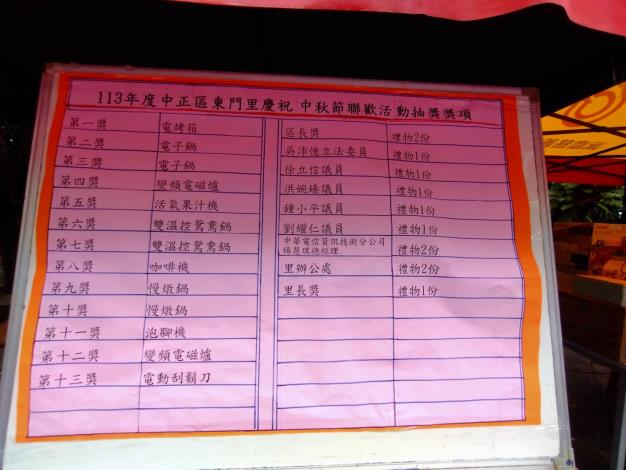 113年度中正區東門里慶祝 中秋節聯歡活動抽獎獎項
第一獎 電烤箱
第二獎 電子鍋
第三獎 電子鍋
第四獎 變頻電磁爐
第五獎 活氧果汁機
第六獎 雙溫控鴛鴦鍋
第七獎 雙溫控鴛鴦鍋
第八獎 咖啡機
第九獎 慢燉鍋
第十獎 慢燉鍋
第十一獎 泡腳機
第十二獎 變頻電磁爐
第十三獎 電動刮鬍刀
區長獎 禮物2份
吳沛憶立法委員 禮物1份
徐立信議員 禮物1份
洪婉臻議員 禮物1份
鍾小平議員 禮物1份
劉耀仁議員 禮物1份
中華電信資訊技術分公司
楊慧琪總經理 禮物2份
里辦公處 禮物2份
里長獎 禮物1份